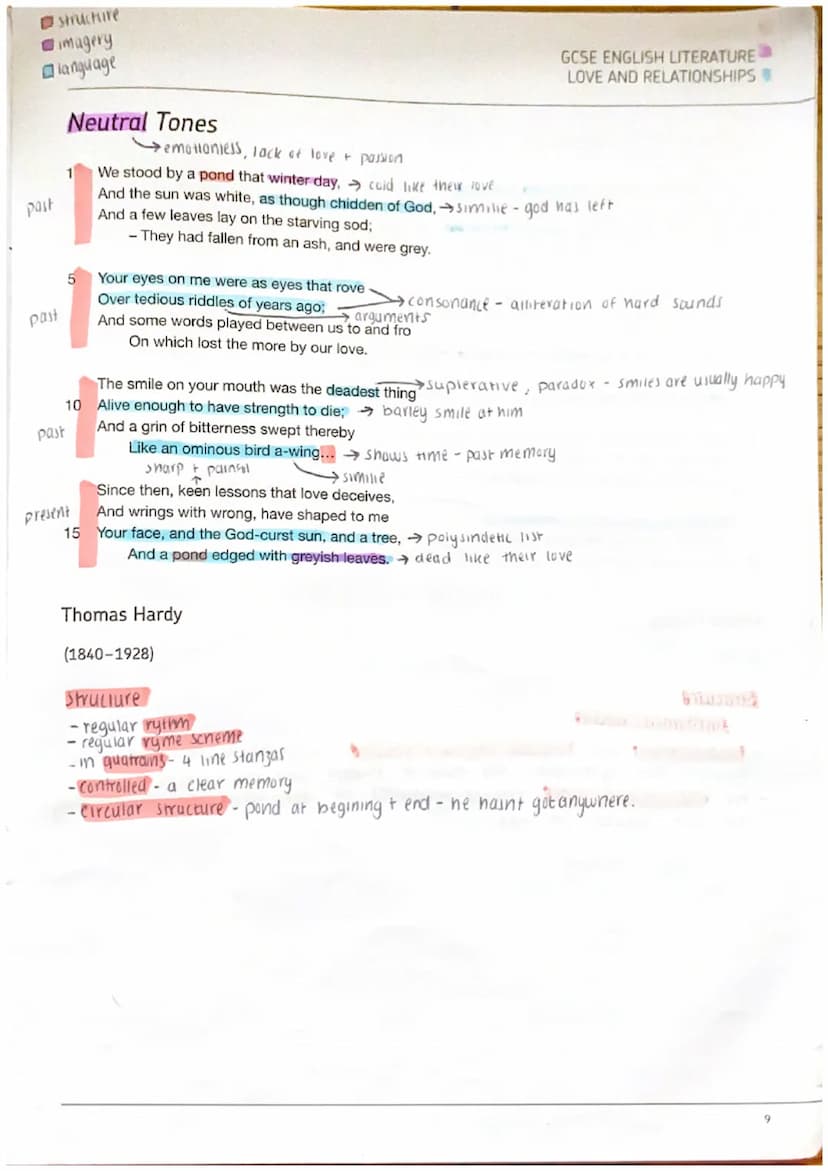 structure
imagery
language
GCSE ENGLISH LITERATURE
LOVE AND RELATIONSHIPS
Neutral Tones
→emotionless, lack of love + passion
1 We stood by a pond that winter day, → cold like their love
past And the sun was white, as though chidden of God, → similie - god has left
And a few leaves lay on the starving sod;
– They had fallen from an ash, and were grey.
5 Your eyes on me were as eyes that rove
Over tedious riddles of years ago; → consonance - alliteration of hard sounds
→ arguments
past And some words played between us to and fro
On which lost the more by our love.
The smile on your mouth was the deadest thing → suplerative, paradox - smiles are usually happy
10 Alive enough to have strength to die; → barley smile at him
past And a grin of bitterness swept thereby
Like an ominous bird a-wing... → shows time - past memory
sharp + painful → similie
Since then, keen lessons that love deceives,
present And wrings with wrong, have shaped to me
15 Your face, and the God-curst sun, and a tree, → polysindetic list
And a pond edged with greyish leaves. → dead like their love
Thomas Hardy
(1840–1928)
Structure
- regular rythm
- regular ryme scheme
- in quatrains - 4 line stanzas
- controlled - a clear memory
- circular structure - pond at begining + end - he hasnt got anywhere.
9